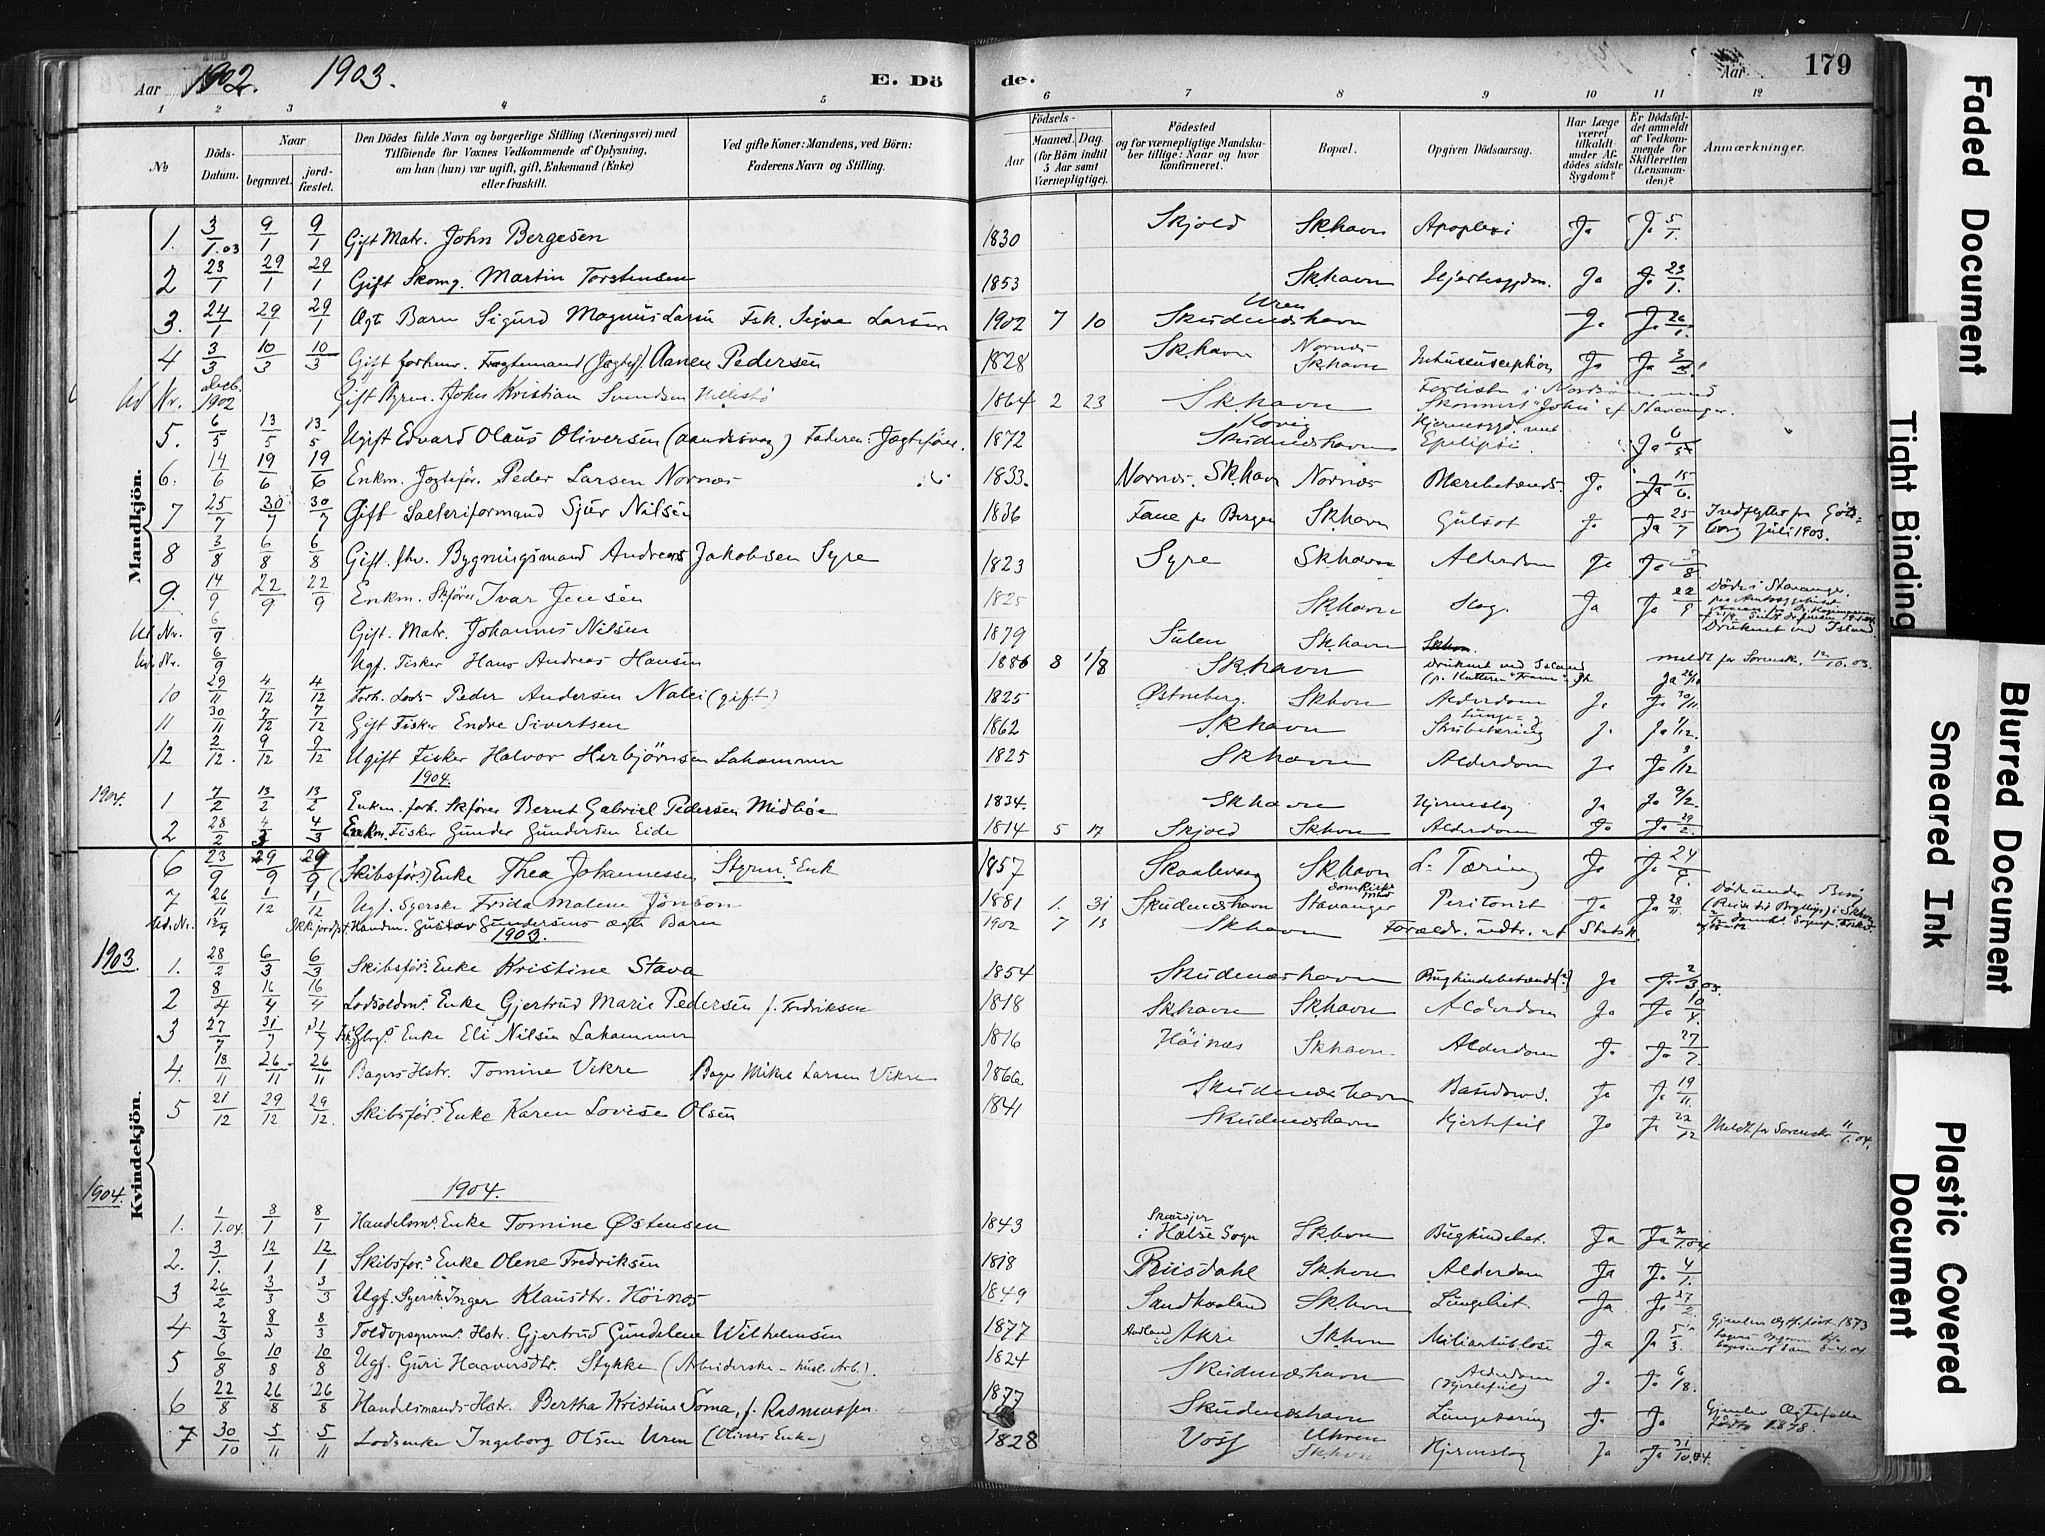 Aar 1902. 1903. E. Dö de. Aar 179
1 2 3 4 5 6 7 8 9 10 11 12
№ Döds-Datum. Naar begravet. jordfæstet. Den Dödes fulde Navn og borgerlige Stilling (Næringsvei) med Tilföiende for Voxnes Vedkommende af Oplysning, om han (hun) var ugift, gift, Enkemand (Enke) eller fraskilt. Ved gifte Koner: Mandens, ved Börn: Faderens Navn og Stilling. Födsels- Aar Maaned. Dag. (for Börn indtil 5 Aar samt Værnepligtige). Födested og for værnepligtige Mandskaber tillige: Naar og hvor konfirmeret. Bopæl. Opgiven Dödsaarsag. Har Læge været tilkaldt under Afdödes sidste Sygdom? Er Dödsfaldet anmeldt af Vedkommende for Skifteretten (Lensmanden)? Anmærkninger.
Mandkjön.
1. 3/1.03 9/1 9/1 Gift Matr. John Bergesen 1830 Skjold Sk.havn Apoplexi Ja Ja 5/1.
2 23/1 29/1 29/1 Gift Skomg. Martin Torstensen 1853 Sk.havn Hjertesygdm. Ja Ja 23/1.
3. 24/1 29/1 29/1 Ægte Barn Sigurd Magnus Larsen Fsk. Sigva Larsen 1902 7 10 Skudeneshavn Uren Ja Ja 26/1.
4 3/3 10/3 10/3 Gift forhenv. Aanen Pedersen 1828 Sk.havn Nornes Sk.havn Intussusception Ja Ja 3/3.
Ud Nr. decb. 1902 Gift Styrm. John Kristian Svendsen Hillestö 1864 2 23 Sk.havn Forliste i Nordsöen med Skonnert "John" af Stavanger.
5. 6/5 13/5 13/5 Ugift Edvard Olaus Oliversen (aandssvag) Faderen: Jægtefön. 1872 Skudeneshavn Hjernesygd. med Epilepsi. Ja 6/5
6. 14/6 19/6 19/6 Enkm. Jægtefør. Peder Larsen Nornæs 1833. Nornes. Sk.havn Nornæs Ja Ja 15/6.
7 25/7 30/7 30/7 Gift Salteriformand Sjur Nilsen 1836 Fane pr Bergen Sk.havn Gulsot Ja Ja 25/7 Indflyttet fra Göteborg Juli 1903.
8 3/8 6/8 6/8 Gift. fhv. Bygningsmand Andreas Jakobsen Syre 1823 Syre Sk.havn Alderdom Ja Ja 8
9 14/9 22/9 22/9 Enkm. Skfører Ivar Jensen 1825 Sk.havn Slag. Ja Ja 22/9 Döde i Stavanger.
Ud. Nr. 6/9 Gift. Matr. Johannes Nilsen 1879 Sulen Sk.havn Druknet ved Island
Ud. Nr. 6/9 Ugf. Fisker Hans Andreas Hansen 1886 8 1/8 Sk.havn Druknet ved Island (p. Kutteren "Fram") meldt for Sorensk. 12/10.03.
10 29/11 4/12 4/12 Forh. Lods Peder Andersen Nalei (gift) 1825 Østneberg. Sk.havn Alderdom Ja Ja 30/11.
11 30/11 7/12 7/12 Gift Fisker Endre Sivertsen 1862 Sk.havn Lunge- & Strubetæring Ja Ja 1/12.
12 2/12. 9/12 9/12 Ugift Fisker Halvor Herbjörnsen Lahammer 1825 Sk.havn Alderdom Ja Ja 9/12
1904.
1904. 1 7/2 13/2 13/2 Enkm. forh. Skfører Bernt Gabriel Pedersen Midböe 1834. Sk.havn Hjerneslag Ja Ja 9/2.
2 28/2 4/3 4/3 Enkm. Fisker Gunder Gundersen Eide 1814 5 17 Skjold Sk.havn Alderdom Ja Ja 29/2.
Kvindekjön.
6 23/9 29/9 29/9 (Skibsförs) Enke Thea Johannessen Styrm.s Enk 1857 Skaalevaag Sk.havn L. Tæring Ja Ja 24/9.
7 26/11 1/12 1/12 Ugf. Syerske Frida Malene Jönson 1881 1. 31 Skudeneshavn Stavanger Peritonit Ja Ja 28/11.
Ud. Nr. 13/9 Ikke jordfst. Handm. Gustav Gundersens ægte Barn 1902 7 13 Sk.havn Forældr. udtr. af Statsk.
1903.
1903. 1. 28/2 6/3 6/3 Skibsførs Enke Kristine Stava 1854 Skudeneshavn Bughindebetænds (?) Ja Ja 2/3 03.
2 8/4 16/4 16/4 Lodsoldms Enke Gjertrud Marie Pedersen f. Fredriksen 1818 Sk.havn Sk.havn Alderdom Ja Ja 10/4.
3 27/7 31/7 31/7 Enke Eli Nilsen Lahammer 1816 Höinæs Sk.havn. Alderdom Ja Ja 27/7.
4. 18/11 26/11 26/11 Bagers Hstr. Tomine Vikre Bager Mikal Larsen Vikre 1866 Skudeneshavn Basedows. Ja Ja 19/11.
5 21/12 29/12 29/12. Skibsførs Enke Karen Lovise Olsen 1841 Skudeneshavn Hjertefeil Ja Ja 22/12 Meldt for Sorensk 11/1.04.
1904.
1904. 1. 1/1.04. 8/1 8/1 Handelsms. Enke Tomine Østensen 1843 i Halse Sogn Sk.havn Bughindebet. Ja Ja 2/1.04
2. 3/1. 12/1 12/1 Skibsførs. Enke Olene Fredriksen 1818 Riisdahl Sk.havn Alderdom Ja Ja 4/1.
3 26/2 3/3 3/3 Ugf. Syersk. Inger Klausdtr. Höines 1849 Sandhaaland Sk.havn Lungebet. Ja Ja 27/2
4 2/3 8/3 8/3 Toldopsynms. Hstr. Gjertrud Gundelene Wilhelmsen 1877 Aadland i Akre Sk.havn Miliartuberlose Ja Ja 5/3.
5 6/8 10/8 10/8 Ugf. Guri Haaversdtr. Stykke (Arbeiderske - husl. Arb.). 1824 Skudeneshavn Alderdom (Hjertefeil) Ja Ja 6/8.
6 22/8 26/8 26/8 Handelsmands Hstr. Bertha Kristine Soma, f. Rasmussen. 1877 Skudeneshavn Lungetæring Ja Ja Gjenlev. Ægtefælle födt 1878.
7 30/10 5/11 5/11 Lodsenke Ingeborg Olsen Uren (Olines Enke) 1828 Voss Uhren Sk.havn Hjerneslag Ja Ja 31/10.04.
Faded Document
Tight Binding
Blurred Document
Smeared Ink
Plastic Covered Document